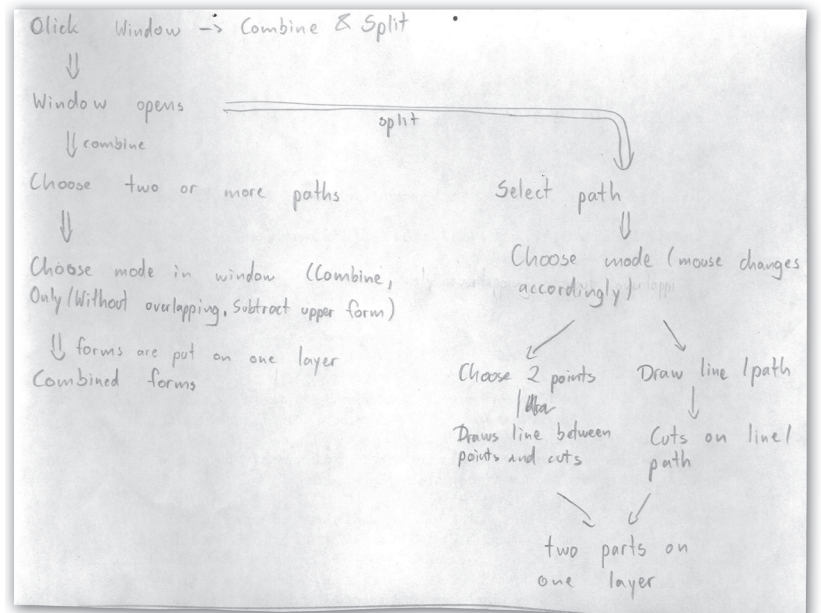 Click Window -> Combine & Split
Window opens
split
combine
Choose two or more paths
Choose mode in window (Combine,
Only/Without overlapping, Subtract upper form)
forms are put on one layer
Combined forms
Select path
Choose mode (mouse changes
accordingly)
Choose 2 points
Draws line between
points and cuts
Draw line/path
Cuts on line/
path
two parts on
one layer